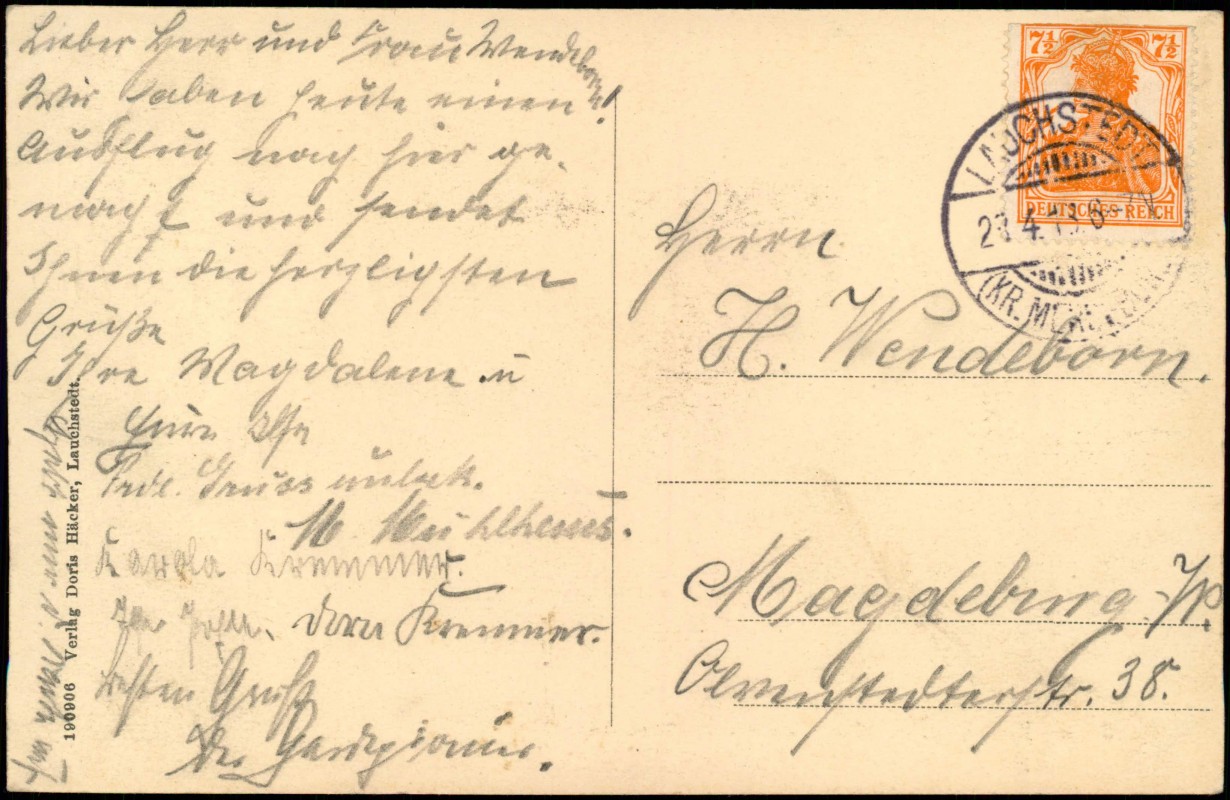 Lieber Herr und Frau Wendeborn!
Wir haben heute einen
Ausflug nach hier ge-
macht und sendet
Ihnen die herzlichsten
Grüße
Ihre Magdalene u
Frdl. Gruss unbek.
M. Mühlhaus.
Karola Kremmer.
Dora Kremmer.
Besten Gruß
190906 Verlag Doris Häcker, Lauchstedt.
7½ 7½
DEUTSCHES REICH
LAUCHSTEDT
4.
(KR.
Herrn
H. Wendeborn.
Magdeburg-W
Olvenstedterstr. 38.